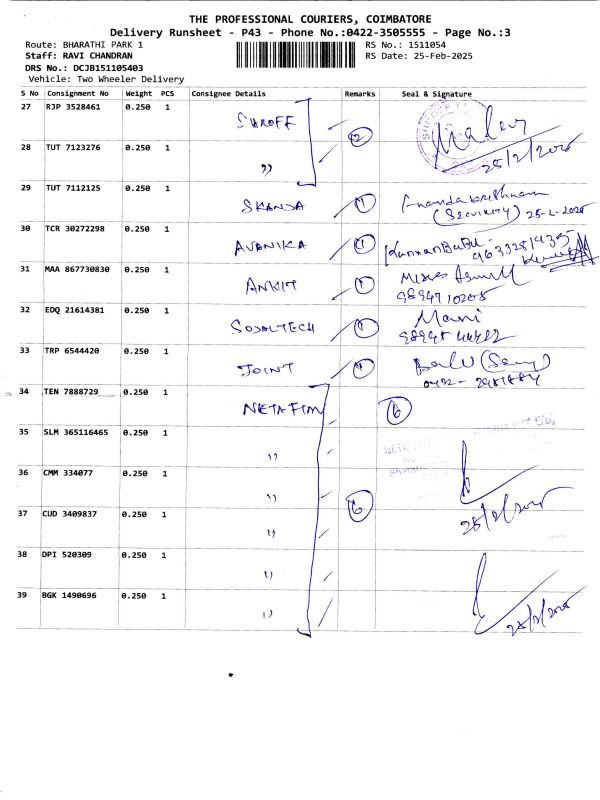 THE PROFESSIONAL COURIERS, COIMBATORE
Delivery Runsheet - P43 - Phone No.:0422-3505555 - Page No.:3
Route: BHARATHI PARK 1 RS No.: 1511054
Staff: RAVI CHANDRAN RS Date: 25-Feb-2025
DRS No.: DCJB151105403
Vehicle: Two Wheeler Delivery
S No Consignment No Weight PCS Consignee Details Remarks Seal & Signature
27 RJP 3528461 0.250 1 SHROFF 2
28 TUT 7123276 0.250 1 " 25/2/2025
29 TUT 7112125 0.250 1 SKANDA 1 Anandakrishnan
(Security) 25-2-2025
30 TCR 30272298 1 AVANIKA 1 KannanBabu
0.250 9633281435
31 MAA 867730830 0.250 1 ANKIT 1
9894710205
32 EDQ 21614381 0.250 1 SODALTECH 1 Mani
33 TRP 6544420 0.250 1 JOINT 1 Balu
34 TEN 7888729 0.250 1 NETAFIM 6
35 SLM 365116465 0.250 1 "
36 CMM 334077 0.250 1 "
37 CUD 3409837 0.250 1 " 6 25/2/2025
38 DPI 520309 0.250 1 "
39 BGK 1490696 0.250 1 " 25/2/2025